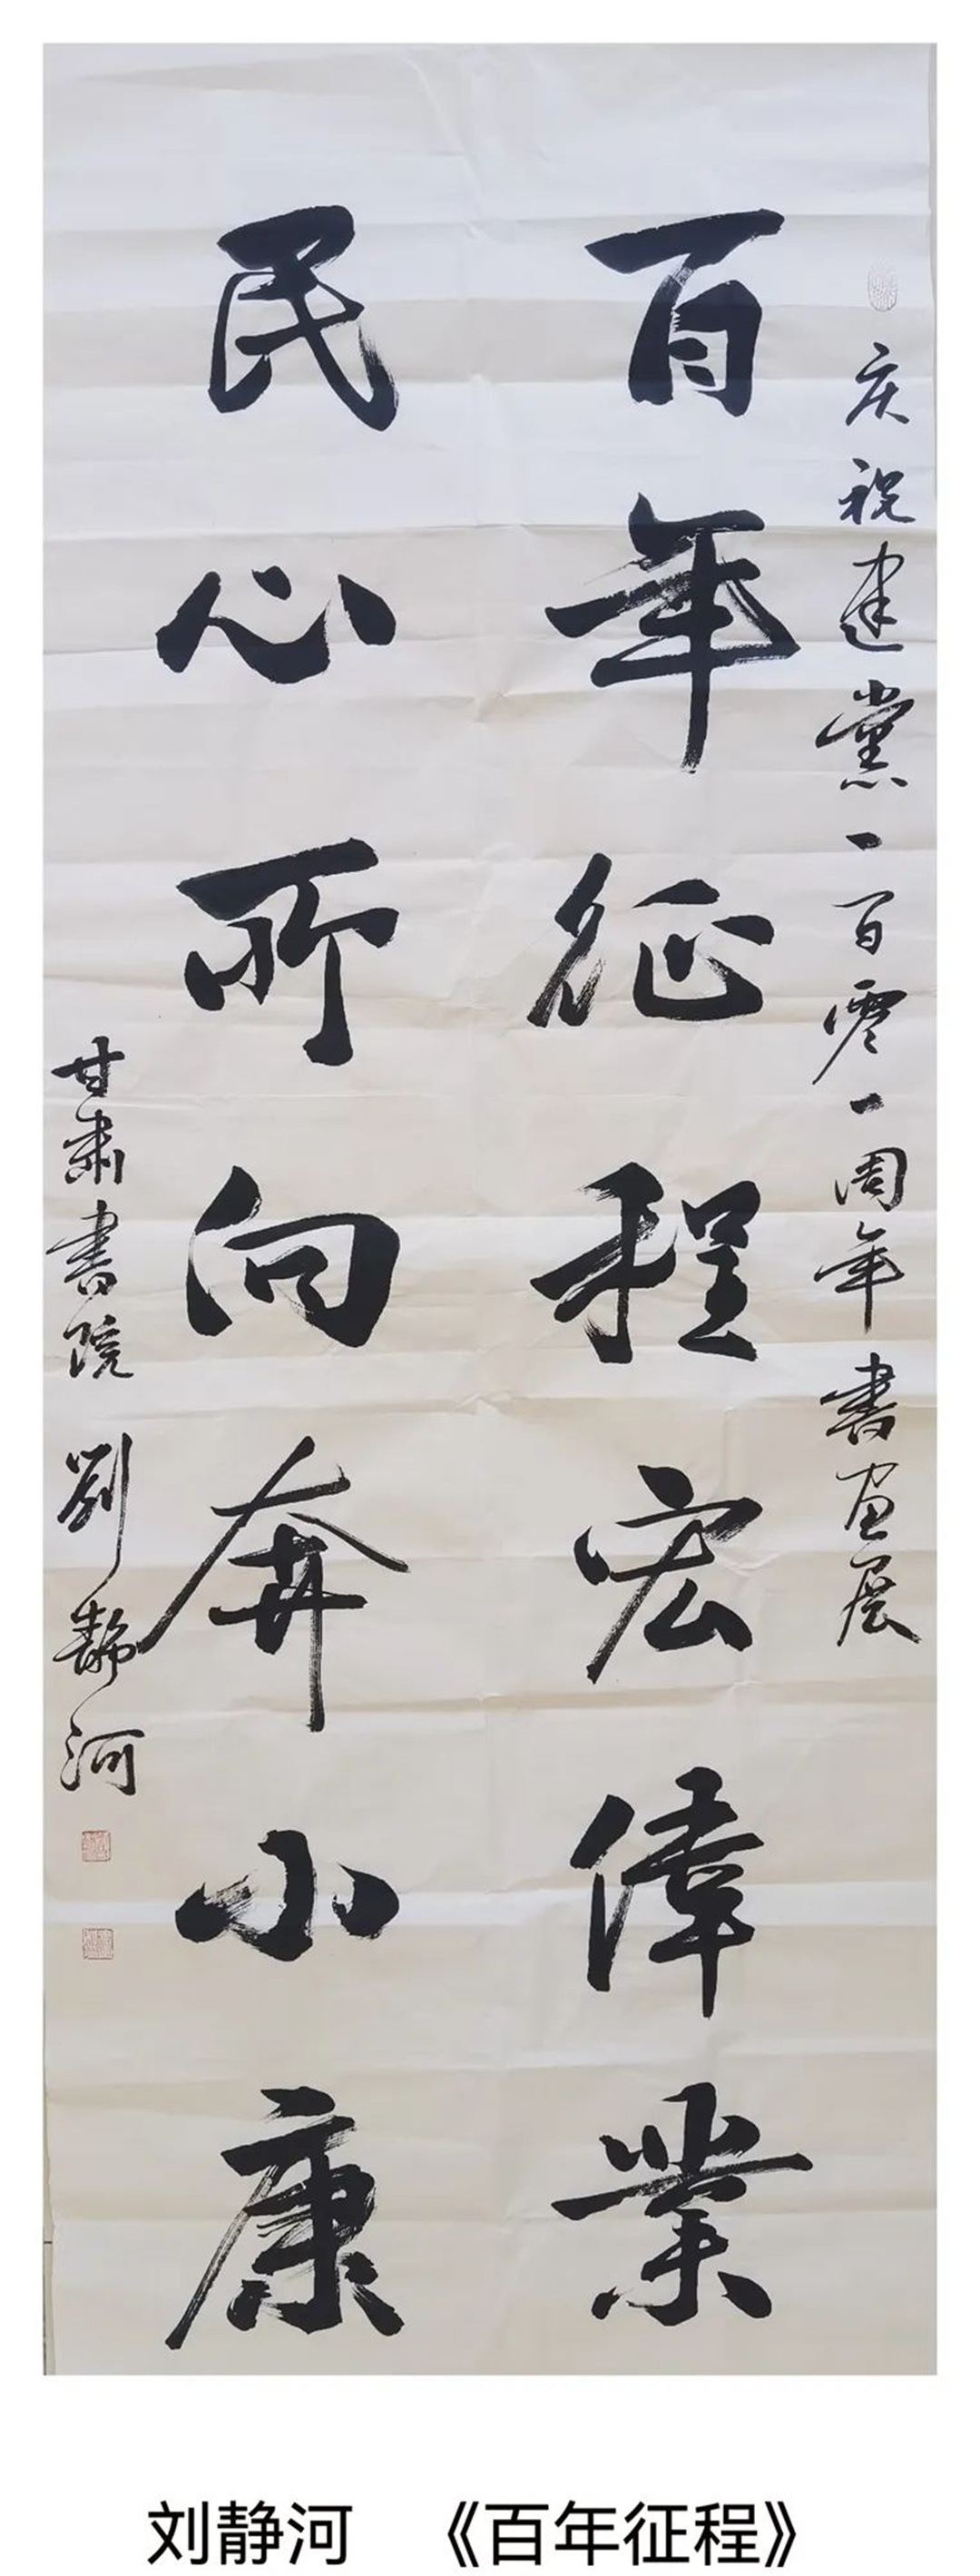 庆祝建黨一百零一周年書画展
百年征程宏偉業
民心所向奔小康
甘肅書院 劉静河
刘静河 《百年征程》